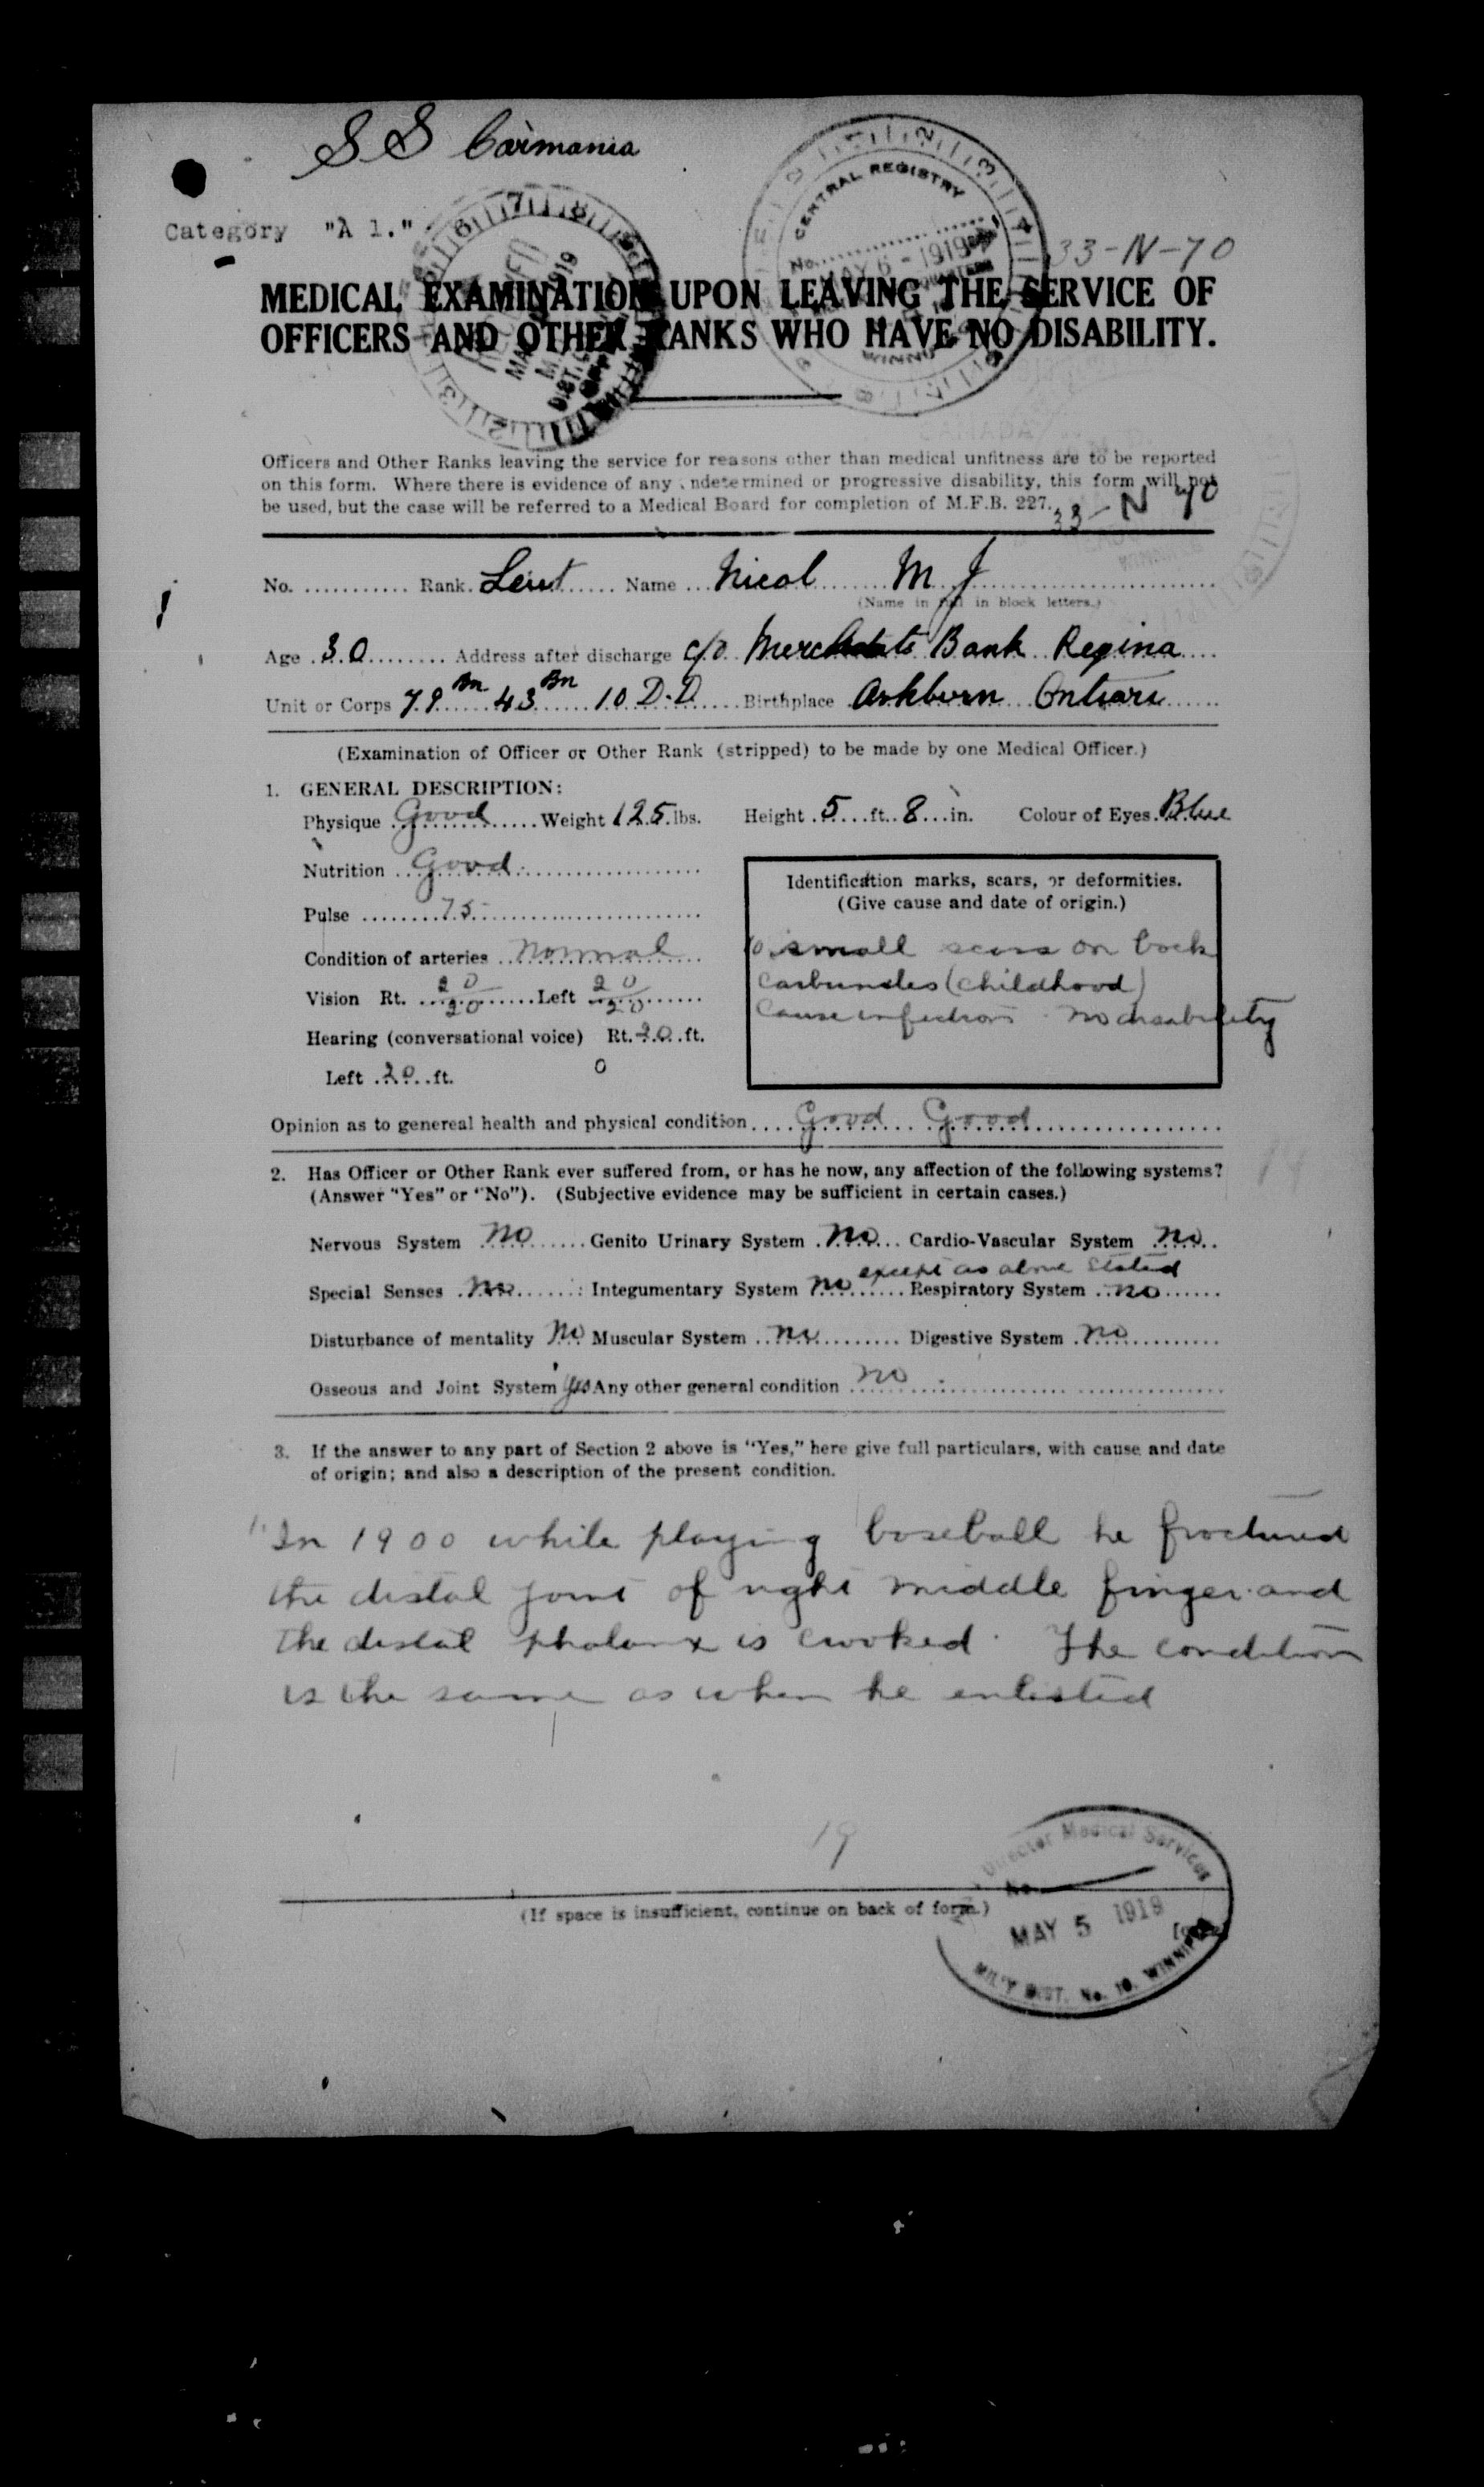 SS Carmania
CENTRAL REGISTRY
No.
MAY 6 - 1919
Category "A 1."
33-N-70
MEDICAL EXAMINATION UPON LEAVING THE SERVICE OF
OFFICERS AND OTHER RANKS WHO HAVE NO DISABILITY.
Officers and Other Ranks leaving the service for reasons other than medical unfitness are to be reported
on this form. Where there is evidence of any undetermined or progressive disability, this form will not
be used, but the case will be referred to a Medical Board for completion of M.F.B. 227.
33-N 70
No. ............ Rank. Leut ...... Name ... Nicol ....... M J ..............................
(Name in full in block letters.)
Age .30........ Address after discharge c/o Merchants Bank Regina ....
Unit or Corps 79 Bn 43 Bn 10 D.D. ...... Birthplace Ashburn Ontario ......
(Examination of Officer or Other Rank (stripped) to be made by one Medical Officer.)
1. GENERAL DESCRIPTION:
Physique Good ....... Weight 125 lbs. Height 5 ft. 8 in. Colour of Eyes. Blue
Nutrition .. Good ......................
Pulse ........ 75 ......................
Condition of arteries .. normal ....
Vision Rt. 20/20 ...... Left 20/20 ......
Hearing (conversational voice) Rt. 20 ft.
Left .20 ft.
0
Identification marks, scars, or deformities.
(Give cause and date of origin.)
10 small scars on back
Carbuncles (childhood)
Cause infection no disability
Opinion as to genereal health and physical condition.... Good Good ......................
2. Has Officer or Other Rank ever suffered from, or has he now, any affection of the following systems?
(Answer "Yes" or "No"). (Subjective evidence may be sufficient in certain cases.)
Nervous System no ...... Genito Urinary System no ... Cardio-Vascular System no ..
except as above stated
Special Senses no ...... Integumentary System no ...... Respiratory System no ......
Disturbance of mentality no Muscular System no .......... Digestive System no ............
Osseous and Joint System yes Any other general condition no ..............................
3. If the answer to any part of Section 2 above is "Yes," here give full particulars, with cause and date
of origin; and also a description of the present condition.
In 1900 while playing baseball he fractured
the distal joint of right middle finger and
the distal phalanx is crooked. The condition
is the same as when he enlisted
19
(If space is insufficient, continue on back of form.)
Director Medical Services
No.
MAY 5 1919
MIL'Y DIST. No. 10. WINNIPEG